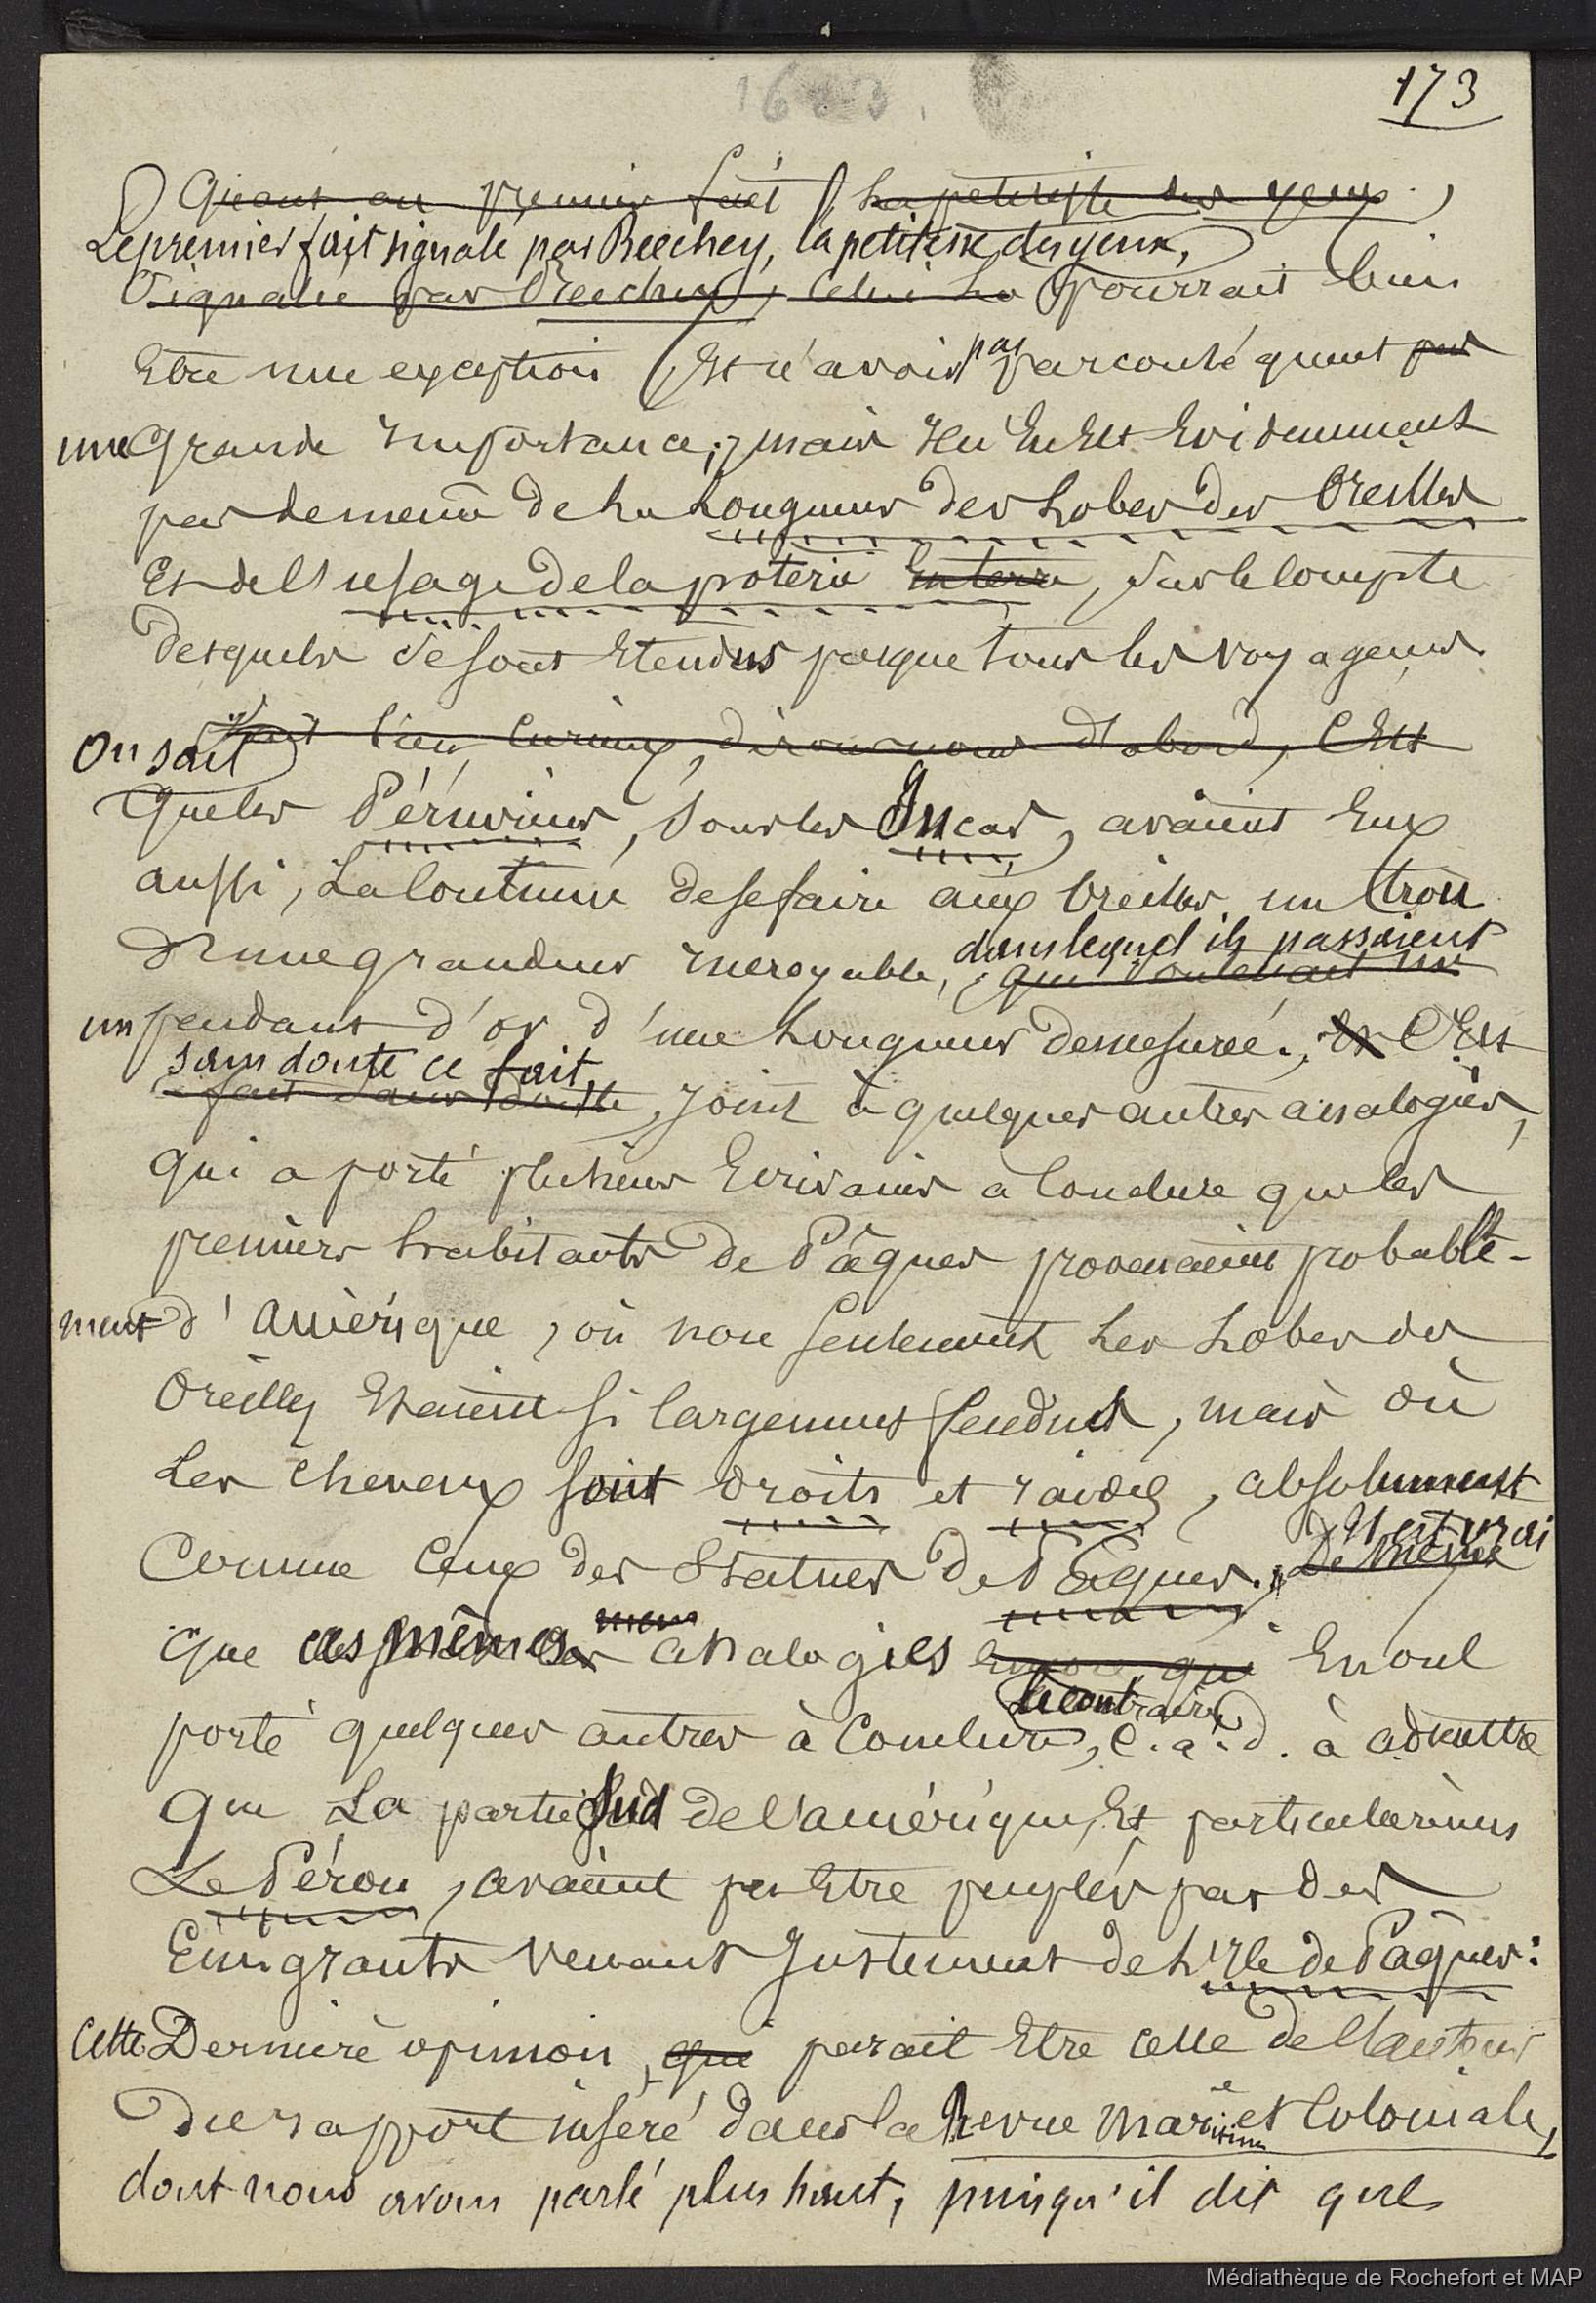 173
Quant au premier fait, la petitesse des yeux,
Le premier fait signalé par Beechey, la petitesse des yeux,
signalée par Beechey, celui là pourrait bien
Etre une exception Et n'avoir pas par conséquent pas
une grande importance; mais Il n'En Est Evidemment
pas de même de la Longueur des Lobes des Oreilles
Et de l'usage de la poterie En terre, sur le compte
desquels se sont Etendus presque tous les voyageurs.
bien curieux, disons nous d'abord, c'Est
On sait
que les Péruviens, sous les Incas, avaient Eux
aussi, La Coutume de se faire aux Oreilles un trou
d'une grandeur incroyable, dans lequel ils passaient
qui soutenait un
un pendant d'or d'une Longueur demesurée. Et C'Est
sans doute ce fait,
fait sans doute, joint à quelques autres analogies,
qui a porté plusieurs Ecrivains a Conclure que les
premiers habitants de Pâques provenaient probable-
ment d'Amérique, où non seulement Les Lobes des
Oreilles Etaient si largement fendus, mais où
Les cheveux sont droits et raides, absolument
Comme Ceux des Statues de Pâques. Il est vrai
De même
que ces mêmes analogies encore qui En ont
porté quelques autres à Conclure le contraire, c.a.d. à admettre
que La partie Sud de l'amérique, Et particulièrement
Le Pérou, avaient pu Etre peuplés par des
Emigrants venant Justement de L'Ile de Pâques:
Cette Dernière opinion, qui parait Etre celle de l'auteur
du rapport inséré dans la Revue Maritime et Coloniale,
dont nous avons parlé plus haut, puisqu'il dit que
Médiathèque de Rochefort et MAP